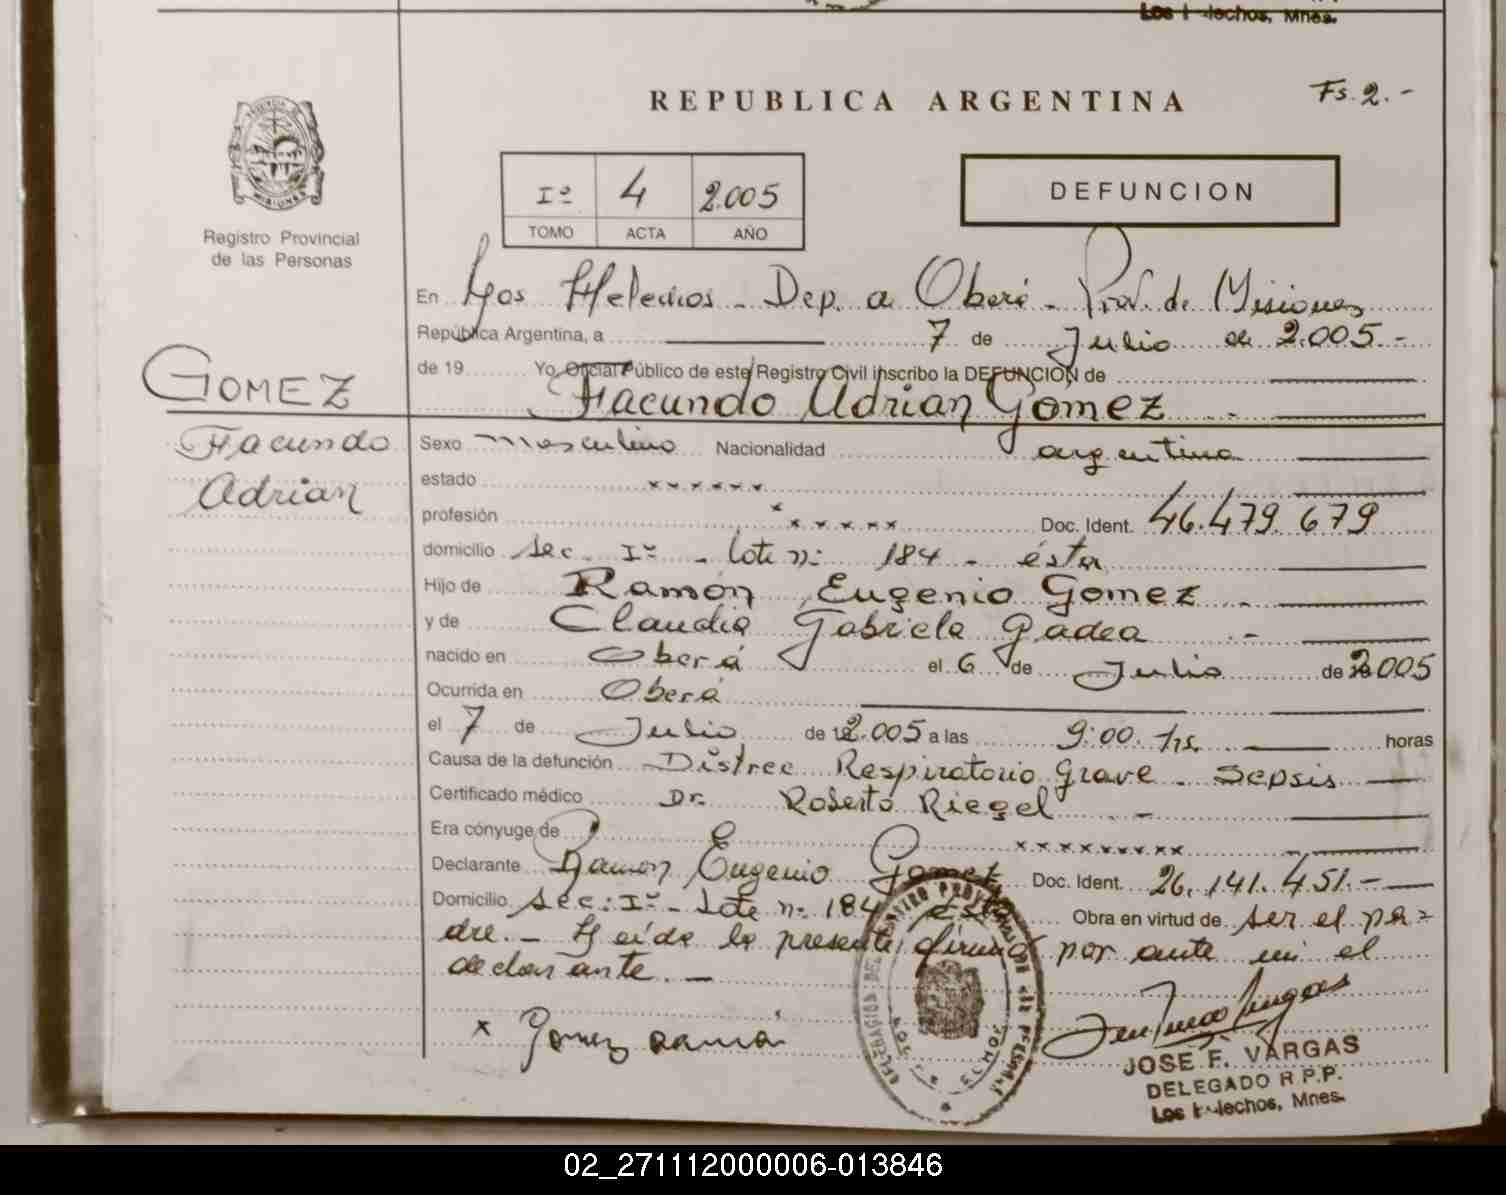 Los Helechos, Mnes.
REPUBLICA ARGENTINA
Fs. 2.-
MISIONES
Registro Provincial
de las Personas
Iº 4 2.005
TOMO ACTA AÑO
DEFUNCION
En Los Helechos - Dep. a Oberá - Prov. de Misiones
República Argentina, a 7 de Julio de 2.005.-
de 19 Yo, Oficial Público de este Registro Civil inscribo la DEFUNCIÓN de
GOMEZ
Facundo Adrian Gomez .-
Facundo
Adrian
Sexo masculino Nacionalidad argentina
estado xxxxxx
profesión xxxxxx Doc. Ident. 46.479.679
domicilio Sec. Iº - Lote nº 184 - ésta
Hijo de Ramón Eugenio Gomez .-
y de Claudia Gabriela Gadea .-
nacido en Oberá el 6 de Julio de 2005
Ocurrida en Oberá
el 7 de Julio de 2.005 a las 9:00 hs. horas
Causa de la defunción Distrec Respiratorio grave - Sepsis
Certificado médico Dr. Roberto Riegel .-
Era cónyuge de xxxxxxxxx
Declarante Ramon Eugenio Gomez Doc. Ident. 26.141.451.-
Domicilio Sec: Iº - Lote nº 184 ésta Obra en virtud de ser el pa=
dre. - Leída la presente, firma por ante mi el
declarante. -
x Gomez Ramón
JOSE F. VARGAS
DELEGADO R.P.P.
Los Helechos, Mnes.
02_271112000006-013846